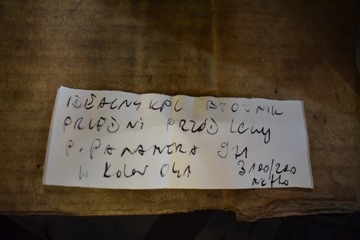 IDEALNY KPL BŁOTNIK
PRZEDNI PRZÓD LEWY
P. PANAMERA 971
W KOLOR 041
3100/200
NETTO